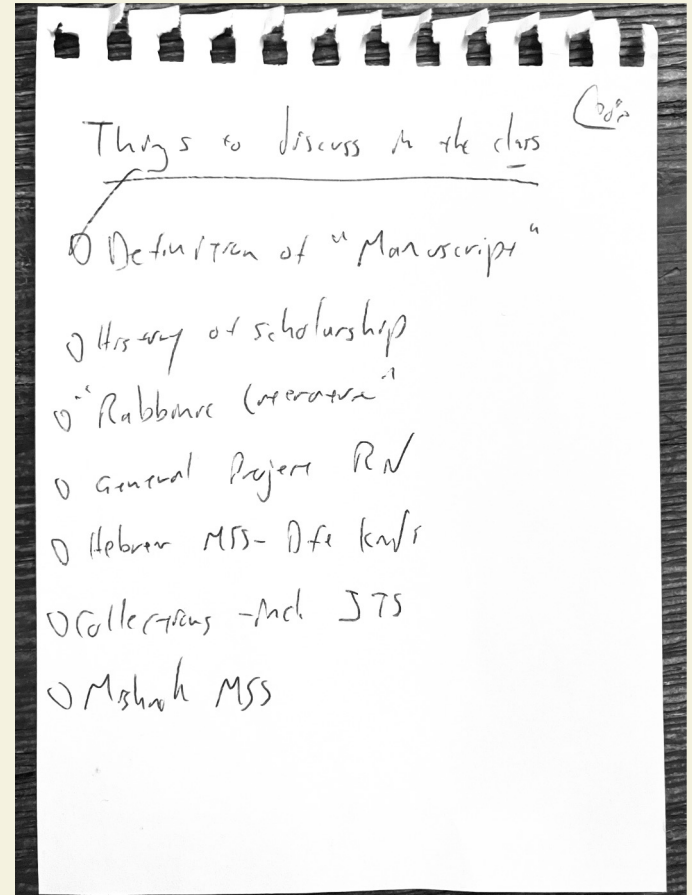 Things to discuss in the class
Definition of "Manuscript"
History of scholarship
"Rabbinic Literature"
General Project RN
Hebrew MSS -
Collections - incl JTS
Mishnah MSS